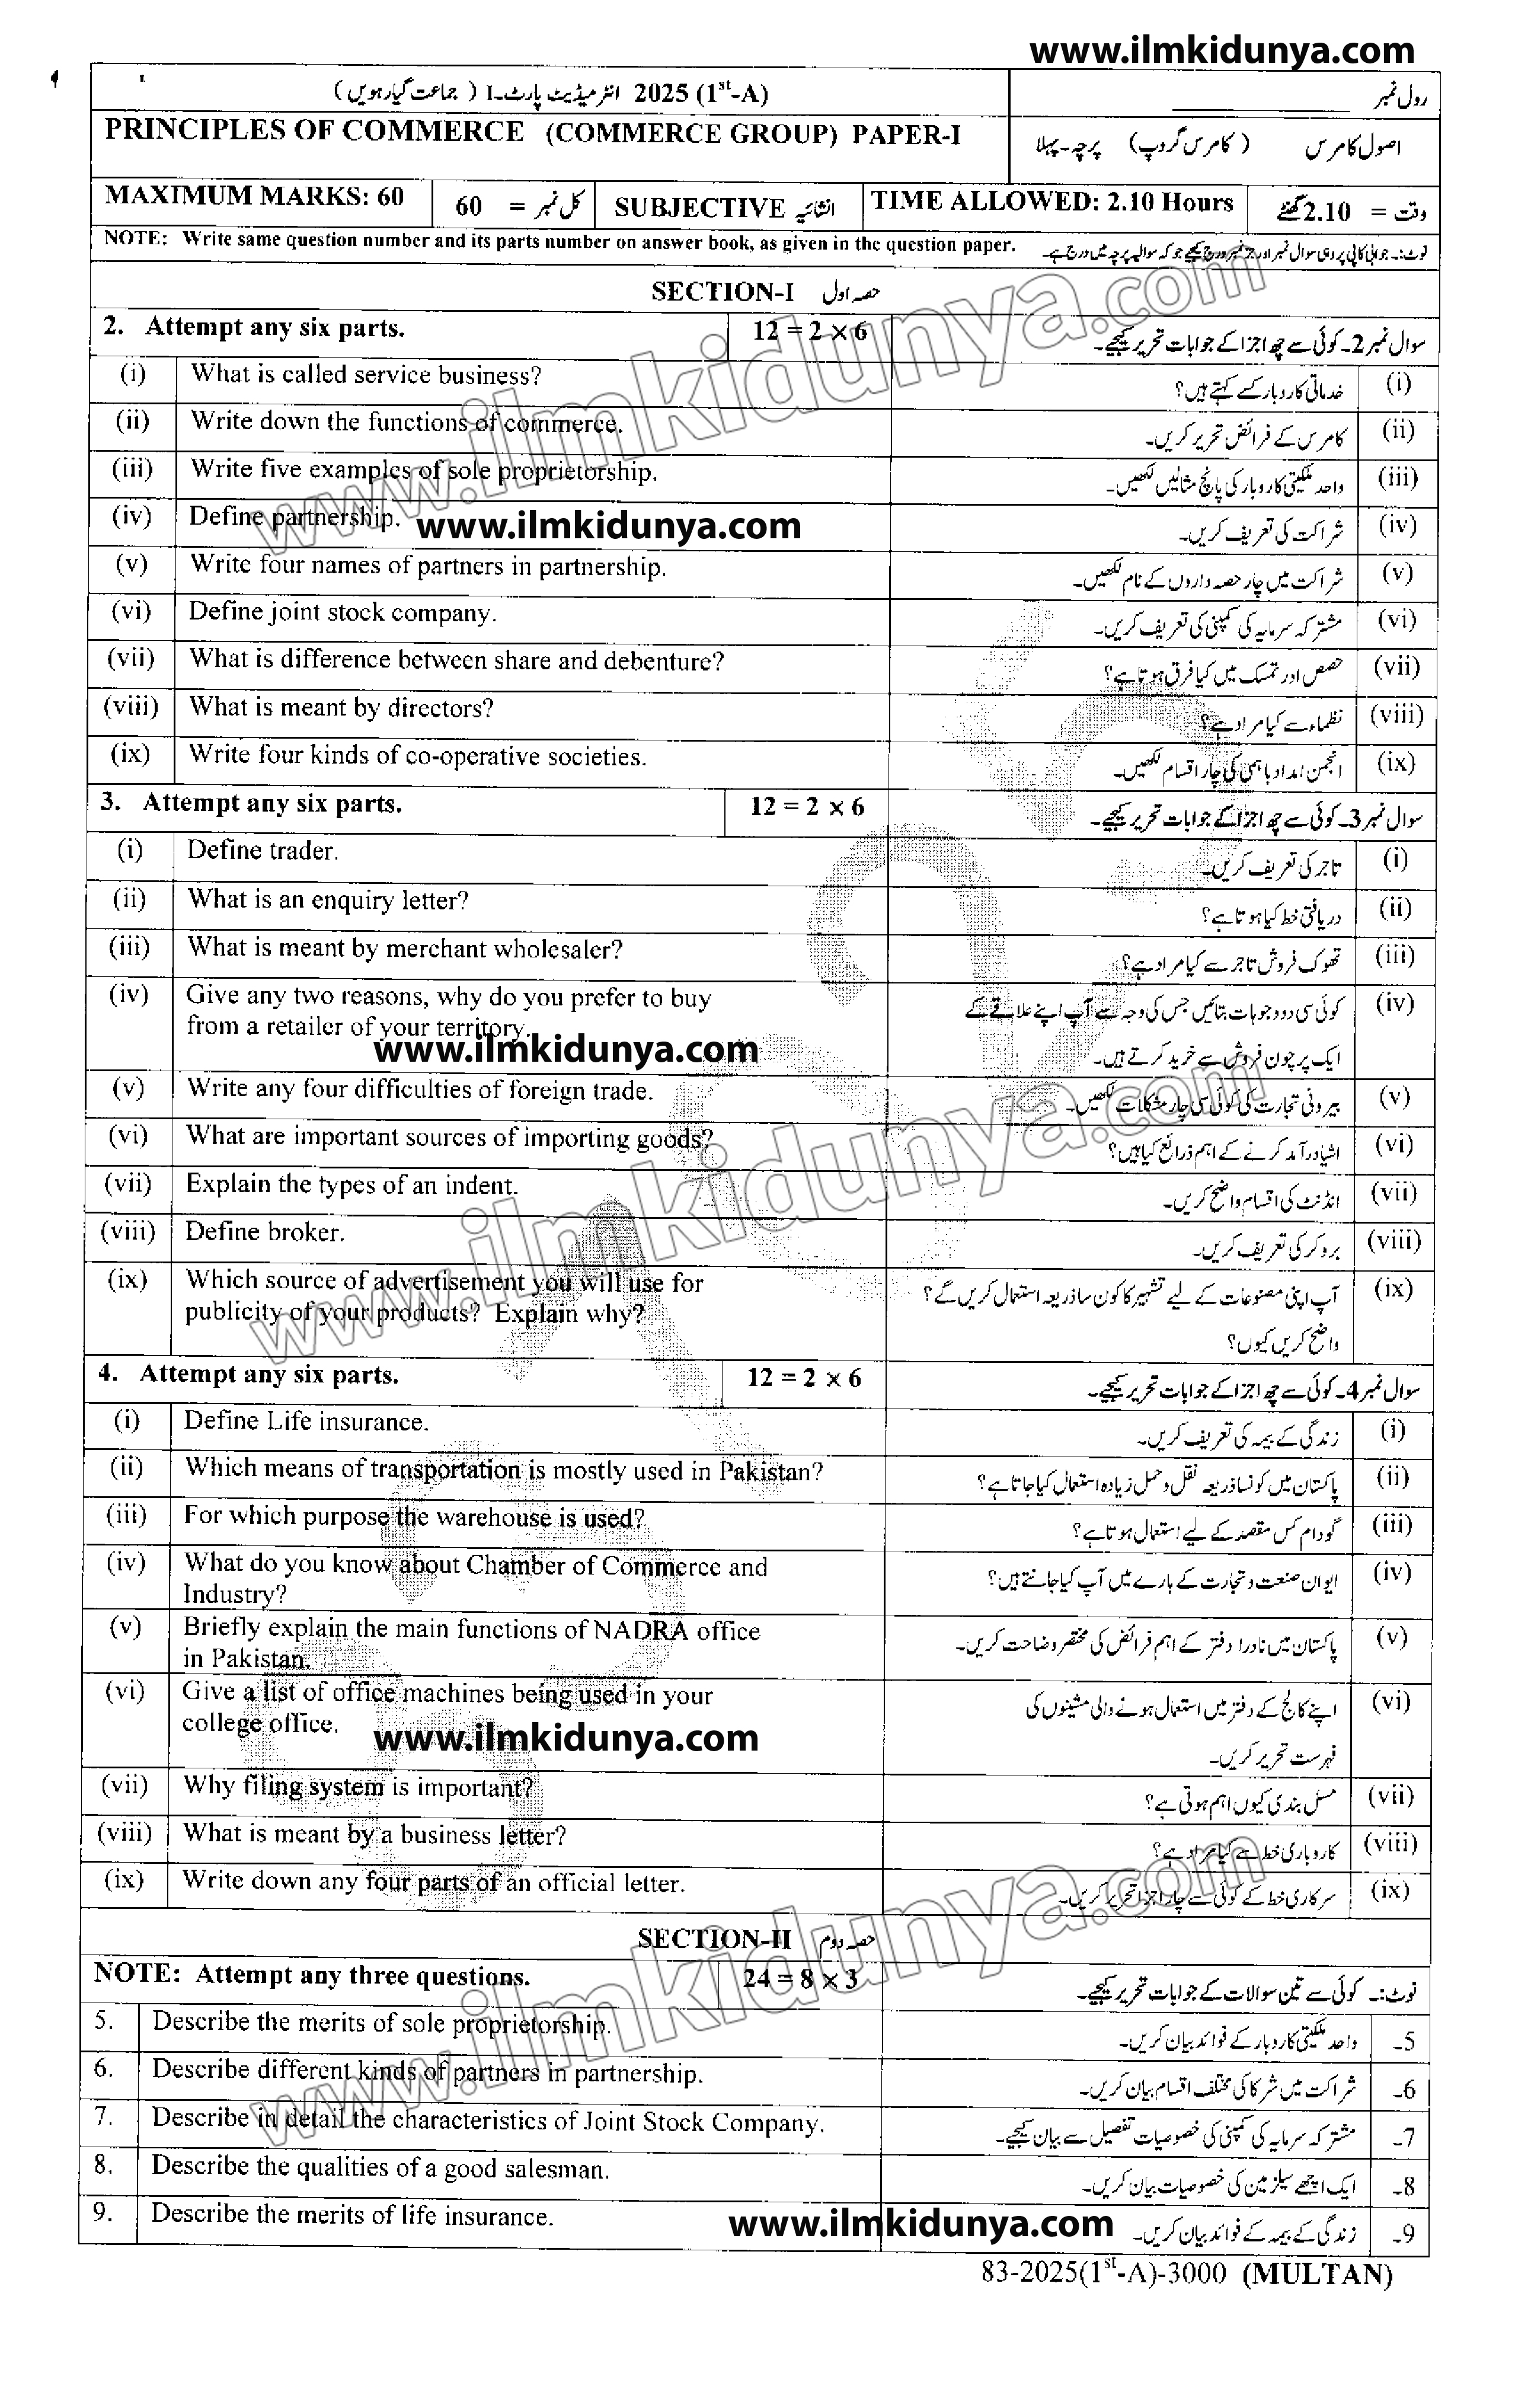 www.ilmkidunya.com
رول نمبر ____________ انٹرمیڈیٹ پارٹ۔I ( جماعت گیارہویں ) 2025 (1st-A)
PRINCIPLES OF COMMERCE (COMMERCE GROUP) PAPER-I
اصول کامرس (کامرس گروپ) پرچہ۔پہلا
MAXIMUM MARKS: 60 کل نمبر = 60 SUBJECTIVE انشائیہ TIME ALLOWED: 2.10 Hours وقت = 2.10 گھنٹے
NOTE: Write same question number and its parts number on answer book, as given in the question paper. نوٹ:۔ جوابی کاپی پر وہی سوال نمبر اور جز نمبر درج کیجئے جو کہ سوالیہ پرچہ میں درج ہے۔
SECTION-I حصہ اول
2. Attempt any six parts. 12 = 2 × 6 سوال نمبر 2۔ کوئی سے چھ اجزا کے جوابات تحریر کیجیے۔
(i) What is called service business? خدماتی کاروبار کسے کہتے ہیں؟ (i)
(ii) Write down the functions of commerce. کامرس کے فرائض تحریر کریں۔ (ii)
(iii) Write five examples of sole proprietorship. واحد ملکیتی کاروبار کی پانچ مثالیں لکھیں۔ (iii)
(iv) Define partnership. www.ilmkidunya.com شراکت کی تعریف کریں۔ (iv)
(v) Write four names of partners in partnership. شراکت میں چار حصہ داروں کے نام لکھیں۔ (v)
(vi) Define joint stock company. مشترکہ سرمایہ کی کمپنی کی تعریف کریں۔ (vi)
(vii) What is difference between share and debenture? حصص اور تمسک میں کیا فرق ہوتا ہے؟ (vii)
(viii) What is meant by directors? نظماء سے کیا مراد ہے؟ (viii)
(ix) Write four kinds of co-operative societies. انجمن امداد باہمی کی چار اقسام لکھیں۔ (ix)
3. Attempt any six parts. 12 = 2 × 6 سوال نمبر 3۔ کوئی سے چھ اجزا کے جوابات تحریر کیجیے۔
(i) Define trader. تاجر کی تعریف کریں۔ (i)
(ii) What is an enquiry letter? دریافتی خط کیا ہوتا ہے؟ (ii)
(iii) What is meant by merchant wholesaler? تھوک فروش تاجر سے کیا مراد ہے؟ (iii)
(iv) Give any two reasons, why do you prefer to buy کوئی سی دو وجوہات بتائیں جس کی وجہ سے آپ اپنے علاقے کے (iv)
from a retailer of your territory. www.ilmkidunya.com ایک پرچون فروش سے خرید کرتے ہیں۔
(v) Write any four difficulties of foreign trade. بیرونی تجارت کی کوئی سی چار مشکلات لکھیں۔ (v)
(vi) What are important sources of importing goods? اشیا درآمد کرنے کے اہم ذرائع کیا ہیں؟ (vi)
(vii) Explain the types of an indent. انڈنٹ کی اقسام واضح کریں۔ (vii)
(viii) Define broker. بروکر کی تعریف کریں۔ (viii)
(ix) Which source of advertisement you will use for آپ اپنی مصنوعات کے لیے تشہیر کا کون سا ذریعہ استعمال کریں گے؟ (ix)
publicity of your products? Explain why? واضح کریں کیوں؟
4. Attempt any six parts. 12 = 2 × 6 سوال نمبر 4۔ کوئی سے چھ اجزا کے جوابات تحریر کیجیے۔
(i) Define Life insurance. زندگی کے بیمہ کی تعریف کریں۔ (i)
(ii) Which means of transportation is mostly used in Pakistan? پاکستان میں کونسا ذریعہ نقل و حمل زیادہ استعمال کیا جاتا ہے؟ (ii)
(iii) For which purpose the warehouse is used? گودام کس مقصد کے لیے استعمال ہوتا ہے؟ (iii)
(iv) What do you know about Chamber of Commerce and ایوان صنعت و تجارت کے بارے میں آپ کیا جانتے ہیں؟ (iv)
Industry?
(v) Briefly explain the main functions of NADRA office پاکستان میں نادرا دفتر کے اہم فرائض کی مختصر وضاحت کریں۔ (v)
in Pakistan.
(vi) Give a list of office machines being used in your اپنے کالج کے دفتر میں استعمال ہونے والی مشینوں کی (vi)
college office. www.ilmkidunya.com فہرست تحریر کریں۔
(vii) Why filing system is important? مسل بندی کیوں اہم ہوتی ہے؟ (vii)
(viii) What is meant by a business letter? کاروباری خط سے کیا مراد ہے؟ (viii)
(ix) Write down any four parts of an official letter. سرکاری خط کے کوئی سے چار اجزا تحریر کریں۔ (ix)
SECTION-II حصہ دوم
NOTE: Attempt any three questions. 24 = 8 × 3 نوٹ:۔ کوئی سے تین سوالات کے جوابات تحریر کیجیے۔
5. Describe the merits of sole proprietorship. واحد ملکیتی کاروبار کے فوائد بیان کریں۔ 5۔
6. Describe different kinds of partners in partnership. شراکت میں شرکا کی مختلف اقسام بیان کریں۔ 6۔
7. Describe in detail the characteristics of Joint Stock Company. مشترکہ سرمایہ کی کمپنی کی خصوصیات تفصیل سے بیان کیجیے۔ 7۔
8. Describe the qualities of a good salesman. ایک اچھے سیلزمین کی خصوصیات بیان کریں۔ 8۔
9. Describe the merits of life insurance. www.ilmkidunya.com زندگی کے بیمہ کے فوائد بیان کریں۔ 9۔
83-2025(1st-A)-3000 (MULTAN)
www.ilmkidunya.com
www.ilmkidunya.com
www.ilmkidunya.com